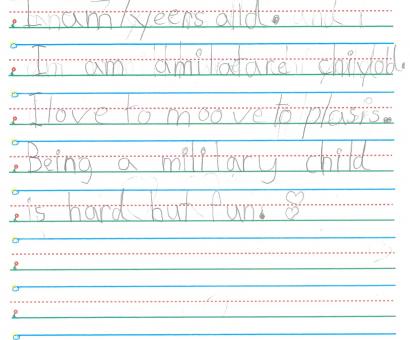 I am 7 yeers alld.
I am amilatare chiyold.
I love to moove to plasis.
Being a military child
is hard but fun.